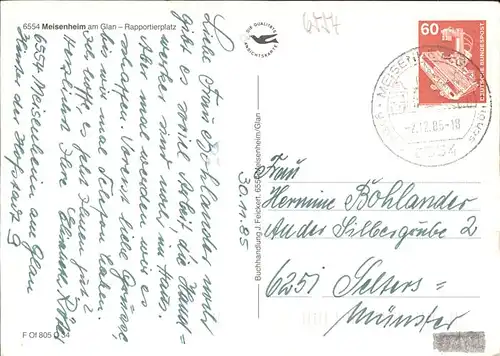 6554 Meisenheim am Glan – Rapportierplatz
6554
DIE QUALITÄTS
ANSICHTSKARTE
60
DEUTSCHE BUNDESPOST
MEISENHEIM
-2.12.85-18
6554
30.11.85
Liebe Frau Bohlander
gibt es viel Arbeit, die Hand-
werker sind noch im Haus.
Aber mal werden wir es
schaffen. Vorerst liebe Grüsse
bis wir mal Telefon haben.
Ich hoffe, es geht Ihnen gut?
Herzlichst Ihre
6554 Meisenheim am Glan
Hinter der Hofstatt 9
Buchhandlung J. Feickert, 6554 Meisenheim/Glan
Frau
Hermine Bohlander
An der Silbergrube 2
6251 Selters-
Münster
F Of 805 D 34